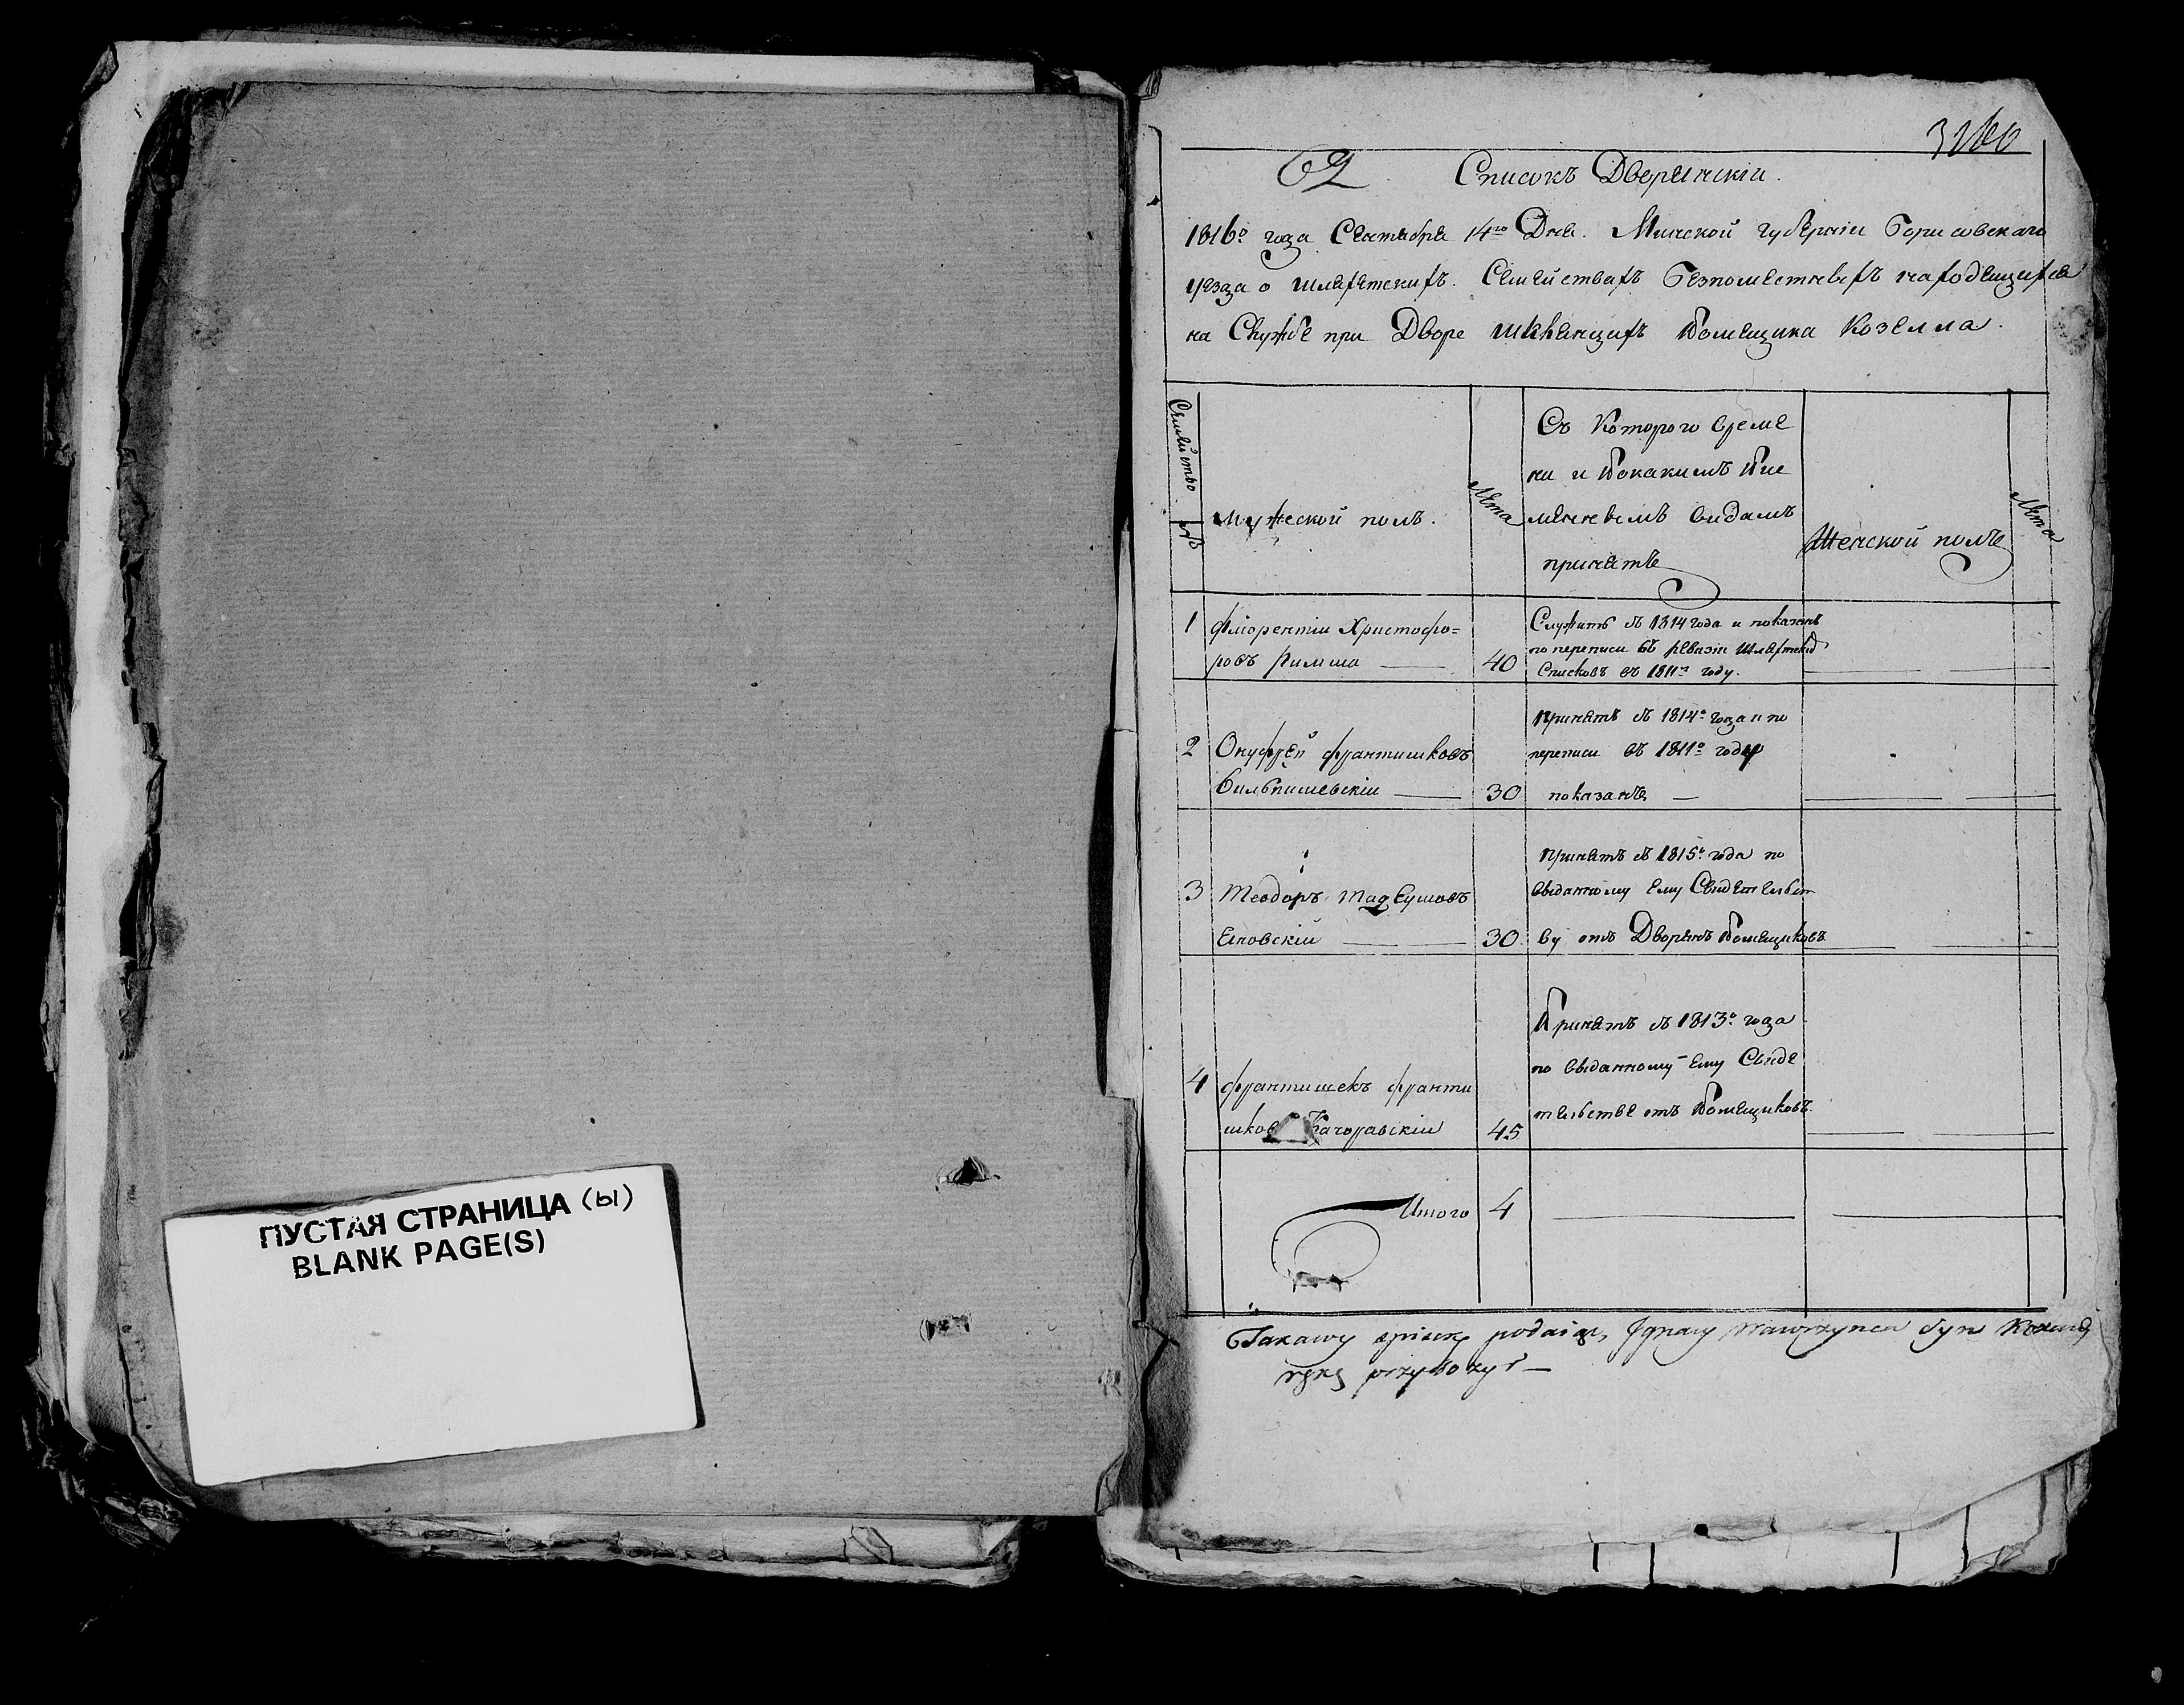 ПУСТАЯ СТРАНИЦА (ы)
BLANK PAGE(S)
62 Списокъ Дворянскiи.
1816º года Сентября 14го Дня. Минской Губернiи Борисовскаго
уезда о шляхетскихъ. Семействахъ безпоместныхъ находящихся
на Службе при Дворе Помещика Козелла.
Семейство №
мужеской полъ.
Лѣта
Съ Которого Време
ни и Покакимъ Пис
менымъ видамъ
принятъ
Женской полъ
Лѣта
1 Флiорентiи Христофо=
ровъ Римша 40
Служитъ съ 1814 года и показанъ
по переписи въ ревизiи Шляхетскихъ
Списковъ въ 1811го году.
2 Онуфрей Франтишковъ
30
Принятъ съ 1814º года и по
переписи въ 1811º году
показанъ
3 Теодоръ Тадеушовъ
Еловскiи 30
Принятъ съ 1815º года по
выданному Ему Свидетельст
ву отъ Дворянъ Помещиковъ
4 Франтишекъ Франти
шков 45
Принятъ съ 1813º года
по выданному Ему Свиде
тельстве отъ Помещиковъ.
Итого 4
Takawy spisek podaiąc, Ignacy Wawrzynca syn
ręką